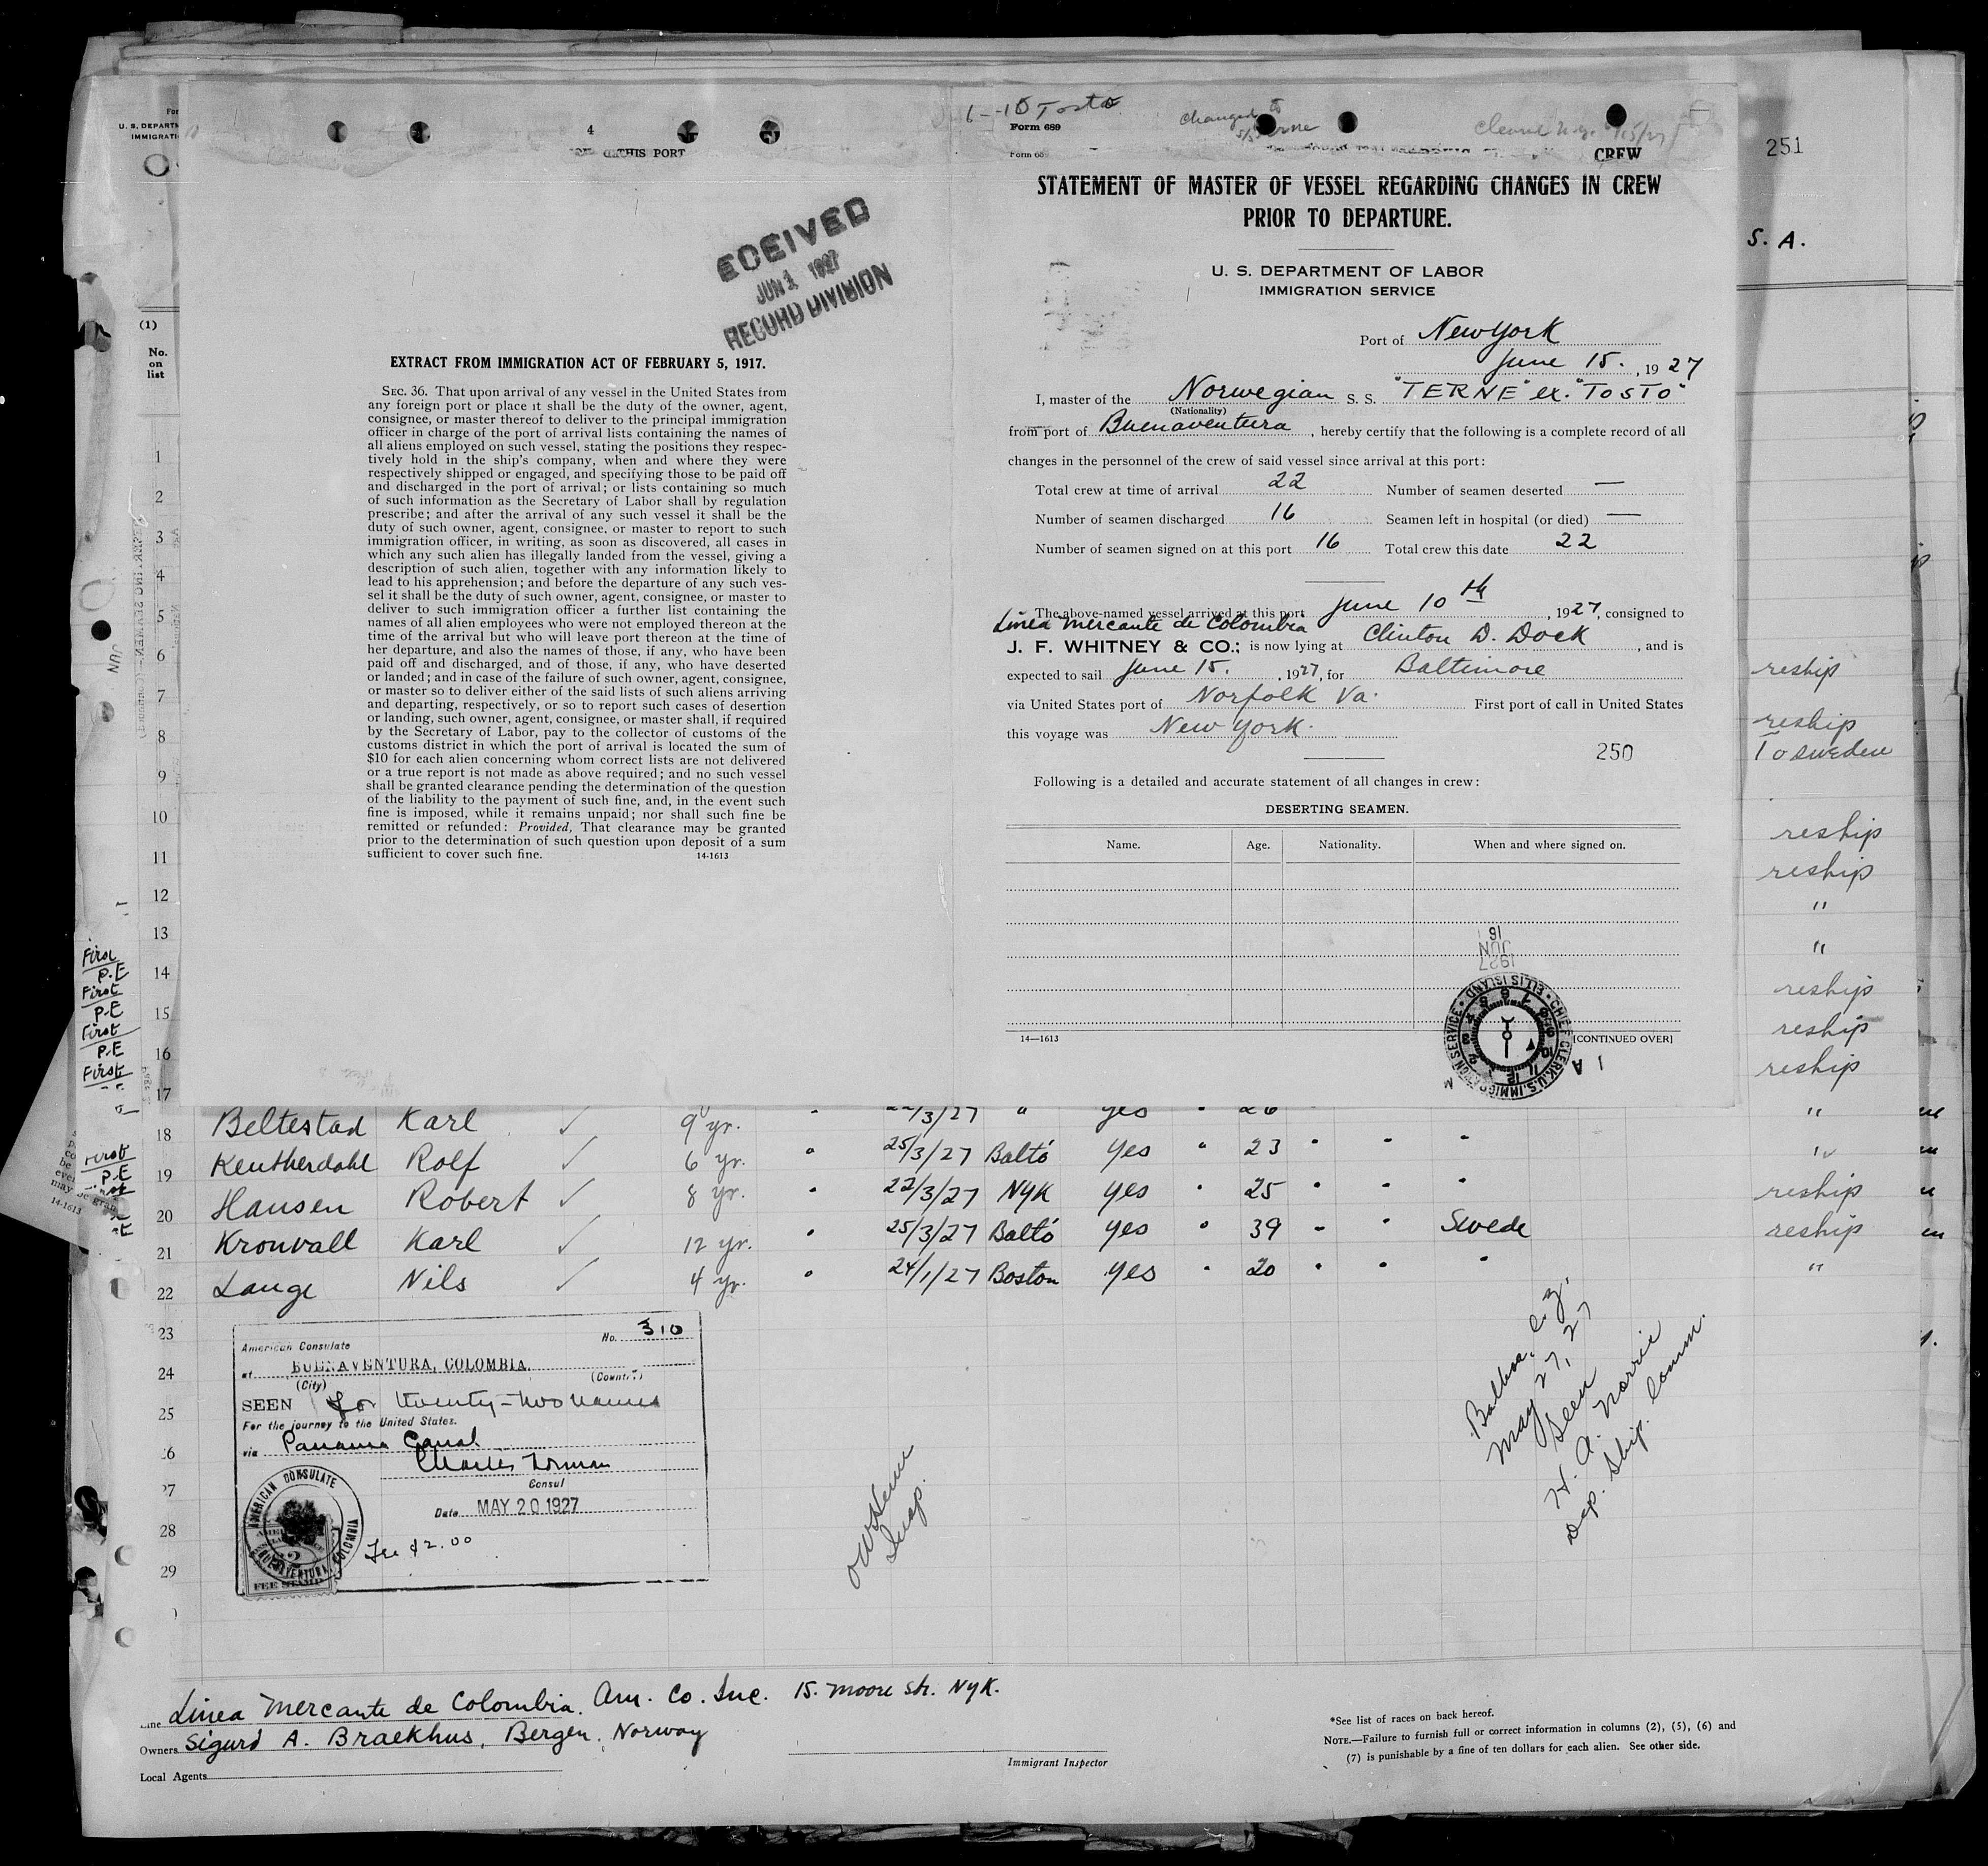 251
S. A.
4
THIS PORT
ECEIVED
JUN 1927
RECORD DIVISION
EXTRACT FROM IMMIGRATION ACT OF FEBRUARY 5, 1917.
SEC. 36. That upon arrival of any vessel in the United States from
any foreign port or place it shall be the duty of the owner, agent,
consignee, or master thereof to deliver to the principal immigration
officer in charge of the port of arrival lists containing the names of
all aliens employed on such vessel, stating the positions they respec-
tively hold in the ship's company, when and where they were
respectively shipped or engaged, and specifying those to be paid off
and discharged in the port of arrival; or lists containing so much
of such information as the Secretary of Labor shall by regulation
prescribe; and after the arrival of any such vessel it shall be the
duty of such owner, agent, consignee, or master to report to such
immigration officer, in writing, as soon as discovered, all cases in
which any such alien has illegally landed from the vessel, giving a
description of such alien, together with any information likely to
lead to his apprehension; and before the departure of any such ves-
sel it shall be the duty of such owner, agent, consignee, or master to
deliver to such immigration officer a further list containing the
names of all alien employees who were not employed thereon at the
time of the arrival but who will leave port thereon at the time of
her departure, and also the names of those, if any, who have been
paid off and discharged, and of those, if any, who have deserted
or landed; and in case of the failure of such owner, agent, consignee,
or master so to deliver either of the said lists of such aliens arriving
and departing, respectively, or so to report such cases of desertion
or landing, such owner, agent, consignee, or master shall, if required
by the Secretary of Labor, pay to the collector of customs of the
customs district in which the port of arrival is located the sum of
$10 for each alien concerning whom correct lists are not delivered
or a true report is not made as above required; and no such vessel
shall be granted clearance pending the determination of the question
of the liability to the payment of such fine, and, in the event such
fine is imposed, while it remains unpaid; nor shall such fine be
remitted or refunded: Provided, That clearance may be granted
prior to the determination of such question upon deposit of a sum
sufficient to cover such fine. 14-1613
Tosto
Form 689
changed to
CREW
STATEMENT OF MASTER OF VESSEL REGARDING CHANGES IN CREW
PRIOR TO DEPARTURE.
U. S. DEPARTMENT OF LABOR
IMMIGRATION SERVICE
Port of New York
June 15. , 1927
I, master of the Norwegian S. S. "TERNE" ex. "TOSTO"
(Nationality)
from port of Buenaventura , hereby certify that the following is a complete record of all
changes in the personnel of the crew of said vessel since arrival at this port:
Total crew at time of arrival 22 Number of seamen deserted —
Number of seamen discharged 16 Seamen left in hospital (or died) —
Number of seamen signed on at this port 16 Total crew this date 22
The above-named vessel arrived at this port June 10th , 1927, consigned to
Linea Mercante de Colombia
J. F. WHITNEY & CO.; is now lying at Clinton D. Dock , and is
expected to sail June 15. , 1927, for Baltimore
via United States port of Norfolk Va. First port of call in United States
this voyage was New York.
250
Following is a detailed and accurate statement of all changes in crew:
DESERTING SEAMEN.
Name. Age. Nationality. When and where signed on.
16
JUN
1927
CHIEF CLERK, U.S. IMMIGRATION SERVICE • ELLIS ISLAND •
14—1613 [CONTINUED OVER]
(1)
No.
on
list
1
2
3
4
5
6
7
8
9
10
11
12
13
14
15
16
17
reship
reship
To Sweden
reship
reship
"
"
reship
reship
reship
First
P.E
First
P.E
First
P.E
First
18 Beltestad Karl ✓ 9 yr. " 22/3/27 " yes " 26 "
19 Keutherdahl Rolf ✓ 6 yr. " 25/3/27 Balto yes " 23 " " " "
20 Hansen Robert ✓ 8 yr. " 22/3/27 Nyk yes " 25 " " " reship
21 Kronvall Karl ✓ 12 yr. " 25/3/27 Balto yes " 39 " " Swede reship
22 Lange Nils ✓ 4 yr. " 24/1/27 Boston yes " 20 " " " "
23
24
25
26
27
28
29
American Consulate No. 310
at BUENAVENTURA, COLOMBIA.
(City) (Country)
SEEN for twenty-two names
For the journey to the United States.
via Panama Canal
Charles Forman
Consul
Date MAY 20 1927
Fee $2.00
AMERICAN CONSULATE
BUENAVENTURA, COLOMBIA
FEE STAMP
Insp.
Balboa, C.Z.
May 27, 27
Seen
H. A. Norrie
Dep. Ship. Comm.
Line Linea Mercante de Colombia. Am. Co. Inc. 15. Moore Str. Nyk.
Owners Sigurd A. Braekhus, Bergen, Norway
Local Agents
Immigrant Inspector
*See list of races on back hereof.
NOTE.—Failure to furnish full or correct information in columns (2), (5), (6) and
(7) is punishable by a fine of ten dollars for each alien. See other side.